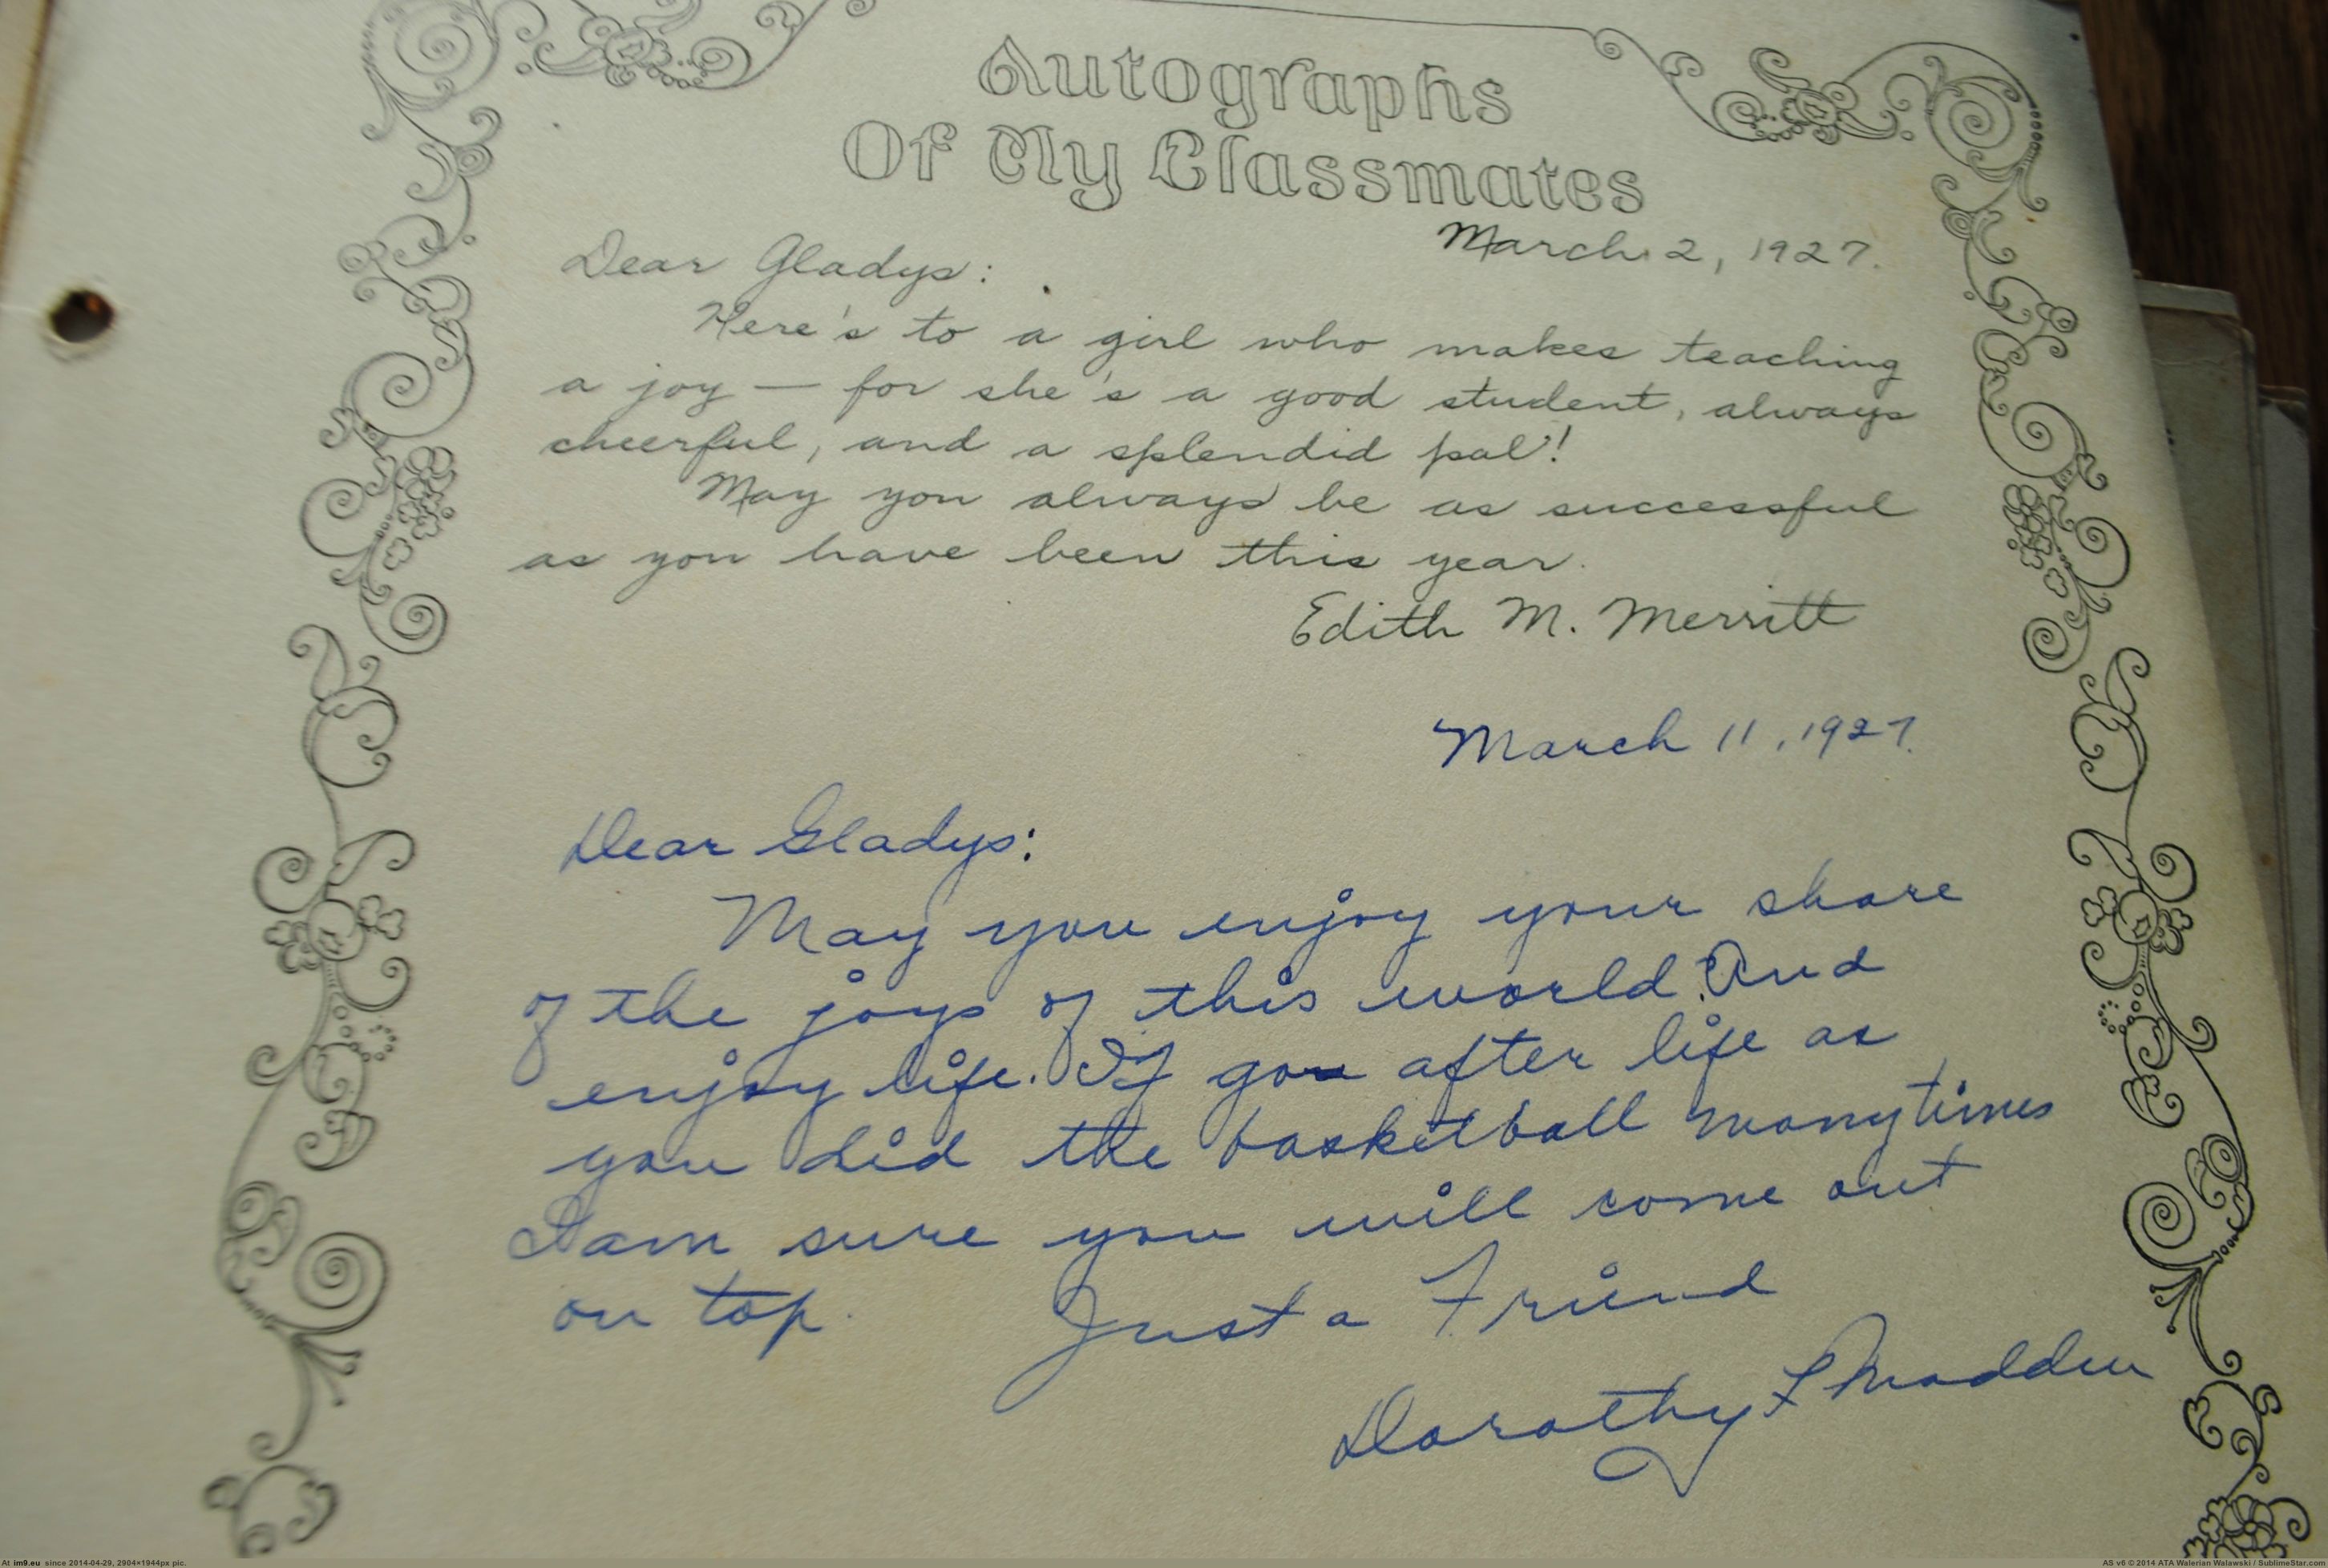 Autographs
Of My Classmates
March 2, 1927.
Dear Gladys:
Here's to a girl who makes teaching
a joy — for she's a good student, always
cheerful, and a splendid pal!
May you always be as successful
as you have been this year.
Edith M. Merritt
March 11, 1927.
Dear Gladys:
May you enjoy your share
of the joys of this world. And
enjoy life. If go after life as
you did the basketball many times
I am sure you will come out
on top.
Just a Friend
Dorothy F Madden
At im9.eu since 2014-04-29, 2904×1944px pic.
AS v6 © 2014 ATA Walerian Walawski / SublimeStar.com